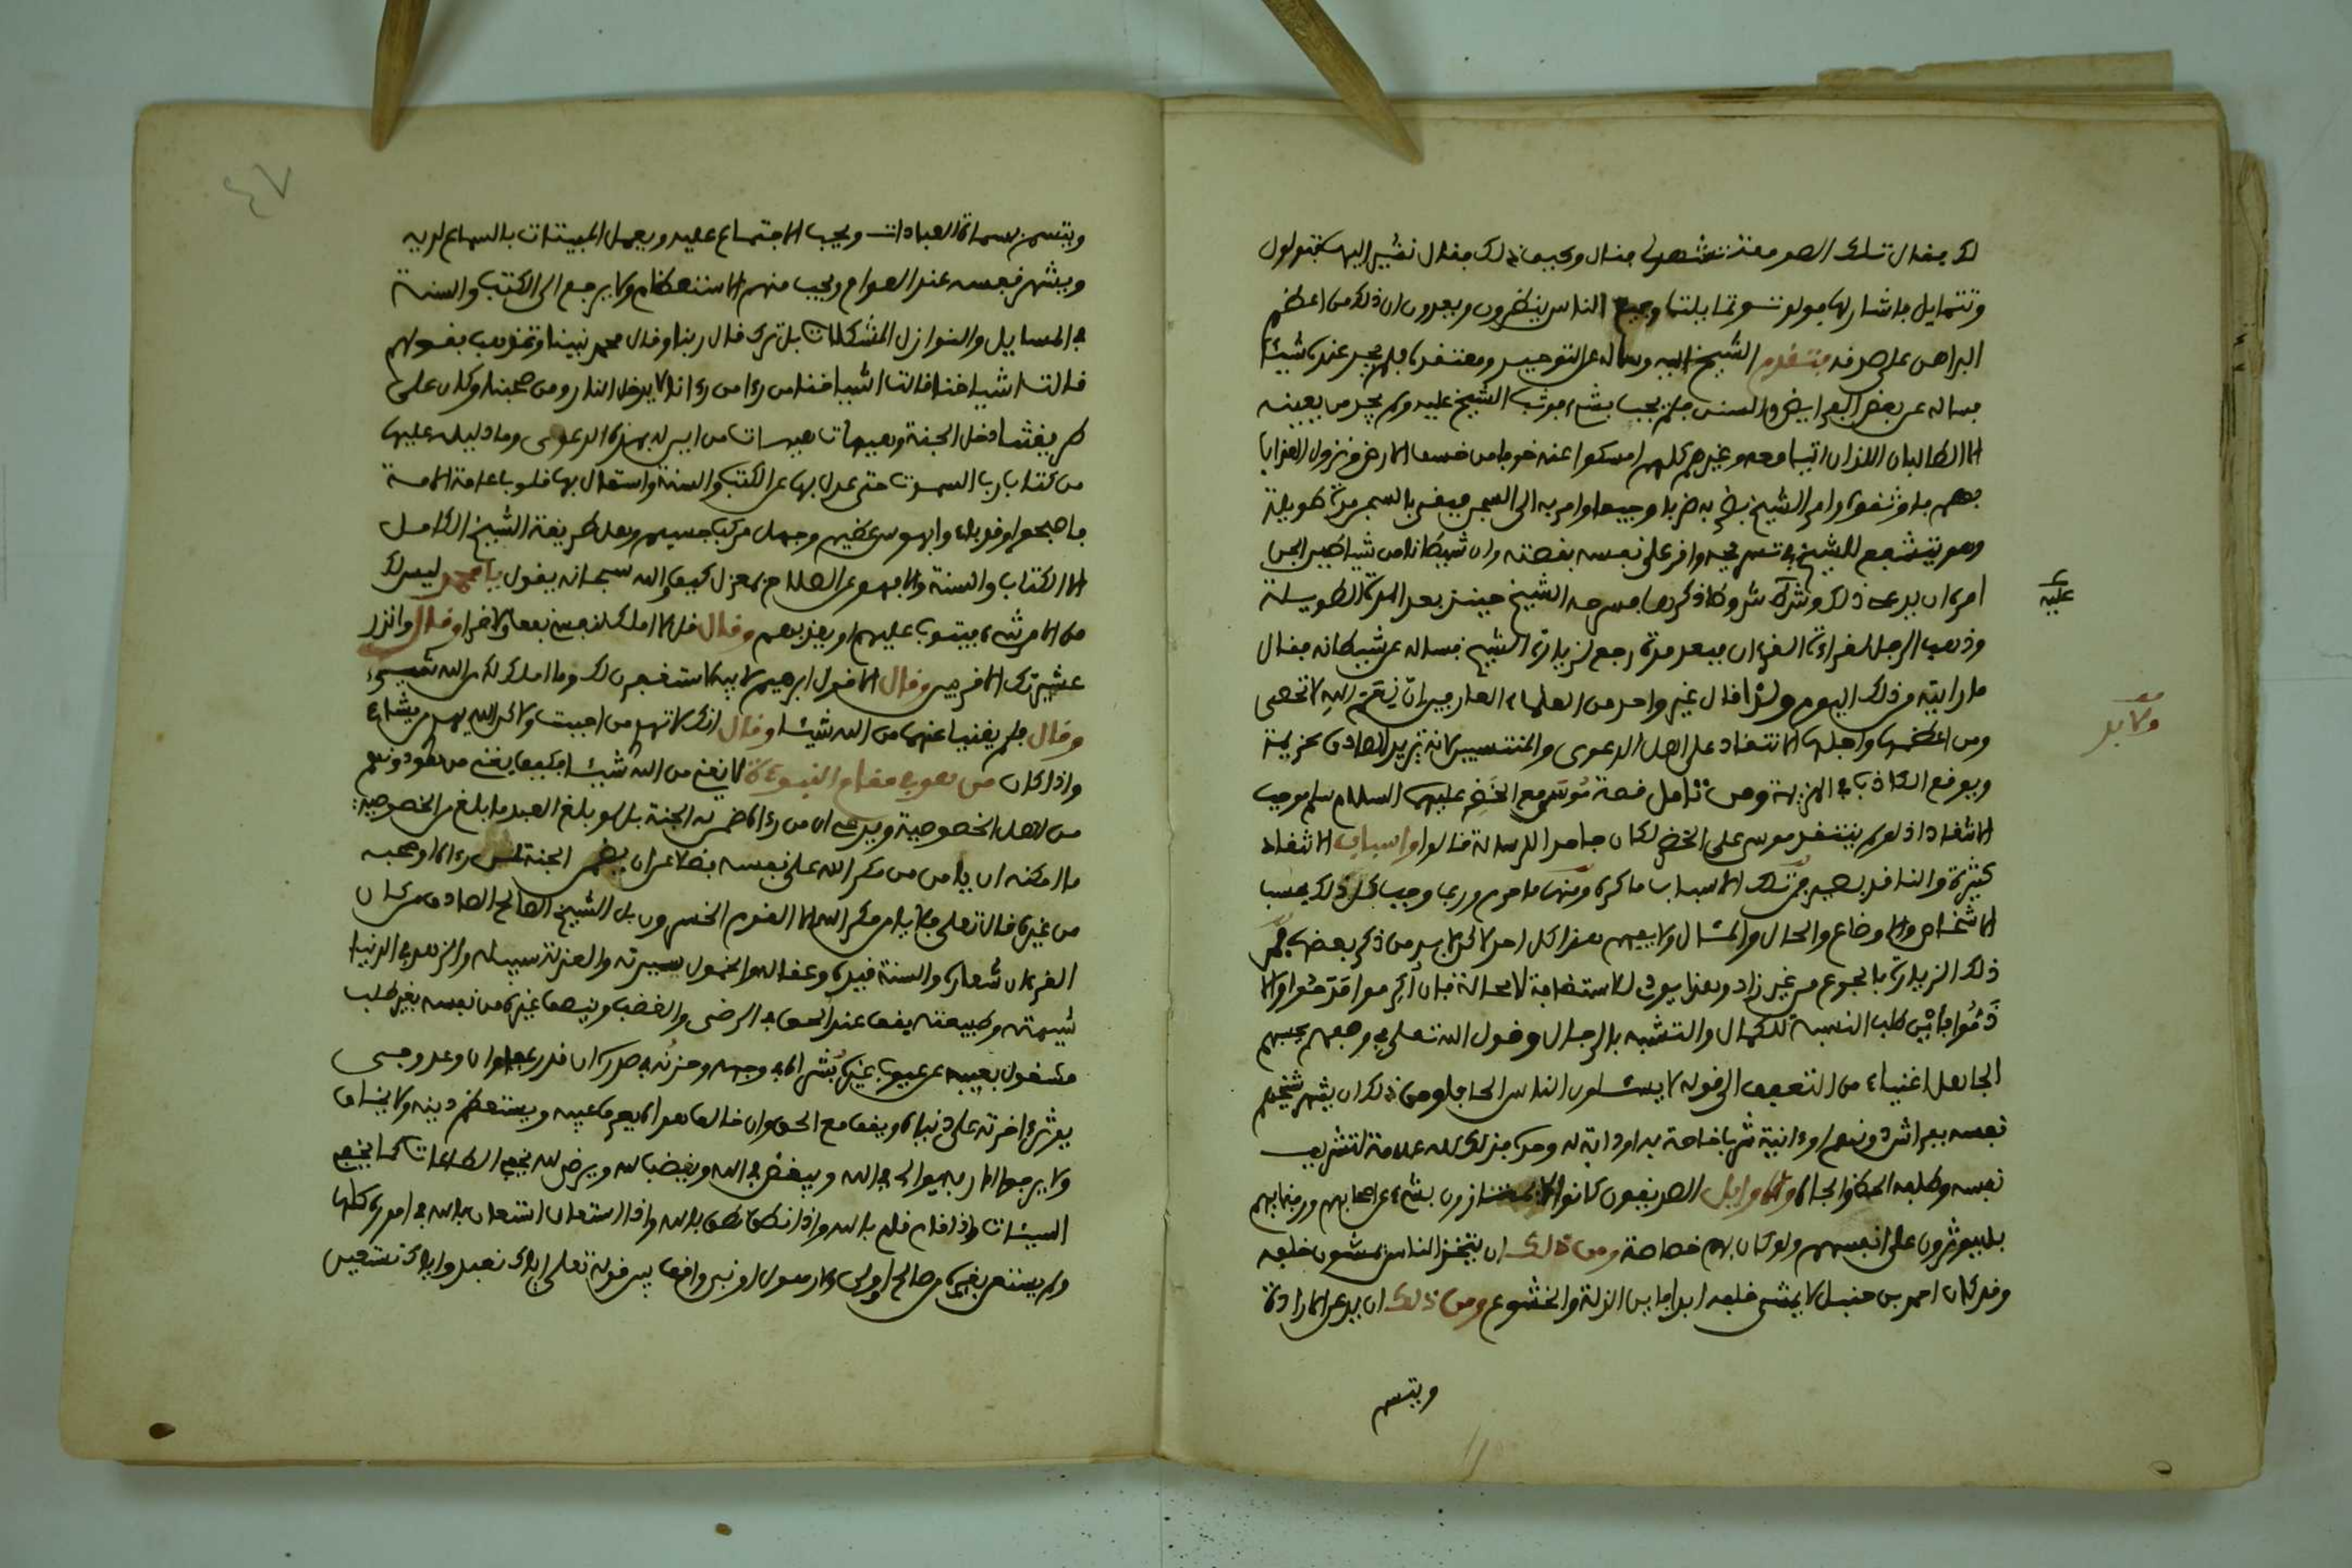 لك فقال تلك الصومعة تشهد فقال وكيف ذلك فقال نشير اليها فتولول
وتتمايل فاشار لها ولولت وتمايلت وجميع الناس ينظرون ويعدون ان ذلك من اعظم
البراهن على صدقه فتقدم الشيخ اليه وساله عن التوحيد ومعتقده فلم يجد عنده شيئا
فساله عن بعض الفرايض والسنن فلم يجب بشيء فوثب الشيخ عليه ولم يجد من يعينه
الا الطالبان اللذان اتيا معه وغيرهم كلهم امسكوا عنه خوفا من خسف الارض ونزول العذاب
بهم فاوثقوه وامر الشيخ بضربه ضربا وجيعا وامر به الى السجن فبقي بالسجن مدة طويلة
وهو يتشفع للشيخ في تسريحه واقر على نفسه بقصته وان شيطانا من شياطين الجن
امره ان يدعي ذلك وشرك شروكا ذكرها فسرحه الشيخ حينئذ بعد المدة الطويلة
عليه
وذهب الرجل لقراءة القرءان فبعد مدة رجع لزيارة الشيخ فساله عن شيطانه فقال
ما رايته من ذلك اليوم ولذا قال غير واحد من العلماء العارفين ان نقم الله لا تحصى
ومن اعظمها واجلها الانتقاد على اهل الدعوى والمنتسبين لانه يزيد الصادق عزيمة
ويوقع الكاذب في الهزيمة ومن تامل قصة موسى مع الخضر عليهما السلام سلم موجب
الانتقاد اذ لو لم ينتقد موسى على الخضر لكان جاحد الرسالة قالوا واسباب الانتقاد
كثيرة والناقد بصير فمن تلك الاسباب ما كره ومنها ما حرم وربما وجب كل ذلك بحسب
الاشخاص والاوضاع والحال والمثال ولا يفهم هذا كل احد لاكن لا بد من ذكر بعضها فمن
ذلك الزيارة بالجوع من غير زاد وهذا يودي للاستضافة لا محالة فان اكرموا مدحوا والا
ذموا فاين طلب النسبة للكمال والتشبه بالرجال وقول الله تعلى في وصفهم يحسبهم
الجاهل اغنياء من التعفف الى قوله لا يسئلون الناس الحافا ومن ذلك ان يشهر شيخهم
نفسه بعد اشد ونعم اوءانية ثم باخاحة بد او دابة له وحده فذلك كله علامة لتشريف
نفسه وطلبه الحظ والجاه والاوايل الصديقون كانوا لا يمتازون بشيء عن اصحابهم ورفقايهم
بل يوثرون على انفسهم ولو كان بهم خصاصة ومن ذلك ان يتخذ الناس يمشون خلفه
وقد كان احمد بن حنبل لا يمشي خلفه احد فاين الذلة والخشوع ومن ذلك ان يدعي الارادة
ويتسم
ويتسمن بسماة العبادات ويحب الاجتماع عليه ويعمل المبيتات بالسماع لديه
ويشهر نفسه عند العوام ويحب منهم الاستعظام ولا يرجع الى الكتب والسنة
في المسايل والنوازل المشكلات بل ترك قال ربنا وقال محمد نبينا وتمذهب بقولهم
قالت اشياخنا قالت اشياخنا من رءا من رءانا لا يدخل النار ومن صحبنا وكان على
طريقتنا دخل الجنة وهيهات هيهات من اين له بهذه الدعوى وما دليله عليها
من كتاب رب السموت حتى عدل بها عن الكتب والسنة واستمال بها قلوب عامة الامة
فاصبحوا في وبال واي هوس عظيم وجهل مركب جسيم وهل طريقة الشيخ الكامل
الا الكتاب والسنة والا فهو عن الصلاح بمعزل كيف والله سبحانه يقول يا محمد ليس لك
من الامر شيء او يتوب عليهم او يعذبهم وقال قل لا املك لنفسي نفعا ولا ضرا وقال وانذر
عشيرتك الاقربين وقال الا قول ابرهيم لابيه لاستغفرن لك وما املك لك من الله من شيء
وقال فلم يغنيا عنهما من الله شيئا وقال انك لا تهدي من احببت ولاكن الله يهدي من يشاء
واذا كان من هو في مقام النبوءة لا يغني من الله شيئا فكيف يغني من هو دونهم
من اهل الخصوصية ويدعي ان من رءاه ضمن له الجنة بل لو بلغ العبد ما بلغ من الخصوصية
ما امكنه ان يامن من مكر الله على نفسه فضلا عن ان يضمن الجنة لمن رءاه او صحبه
من غيره قال تعلى فلا يامن مكر الله الا القوم الخسرون بل الشيخ الصالح الصادق من كان
القرءان شعاره والسنة قيده وعقاله والخمول سيرته والعزلة سبيله والزهد في الدنيا
شيمته وطبيعته يقف عند الحق في الرضى والغضب وينصف غيره من نفسه بغير طلب
مشغول بعيبه عن عيوب غيره بشره في وجهه وحزنه في صدره ان قدر عفا وان وعد وفى
يوثر ءاخرته على دنياه ويقف مع الحق وان خالف هواه يعرف عيبه ويستعظم دينه ولا يخاف
ولا يرجو الا ربه يوالي في الله ويبغض في الله ويغضب لله ويرضى لله يخفي الطاعات كما يخفي
السيئات واذا قام قام بالله واذا نطق نطق بالله واذا استعان استعان بالله في اموره كلها
ولم يستعن بغيره من صالح او ولي او رسول او نبي واقفا بين قوله تعلى اياك نعبد واياك نستعين